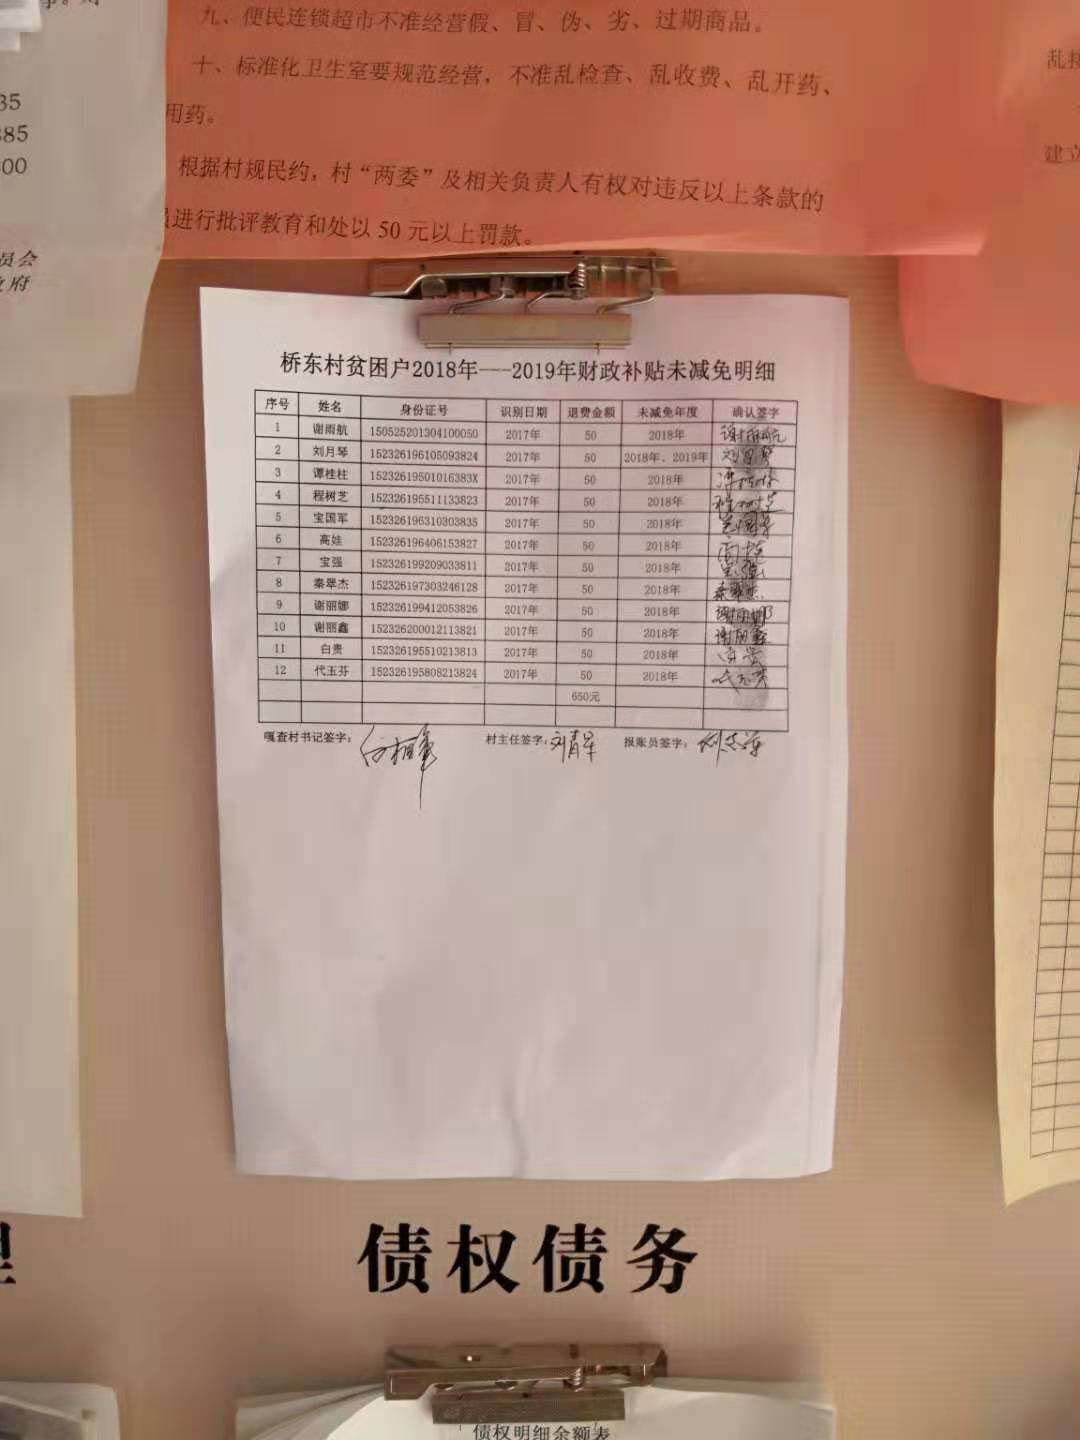 事。对
35
385
300
员会
政府
九、便民连锁超市不准经营假、冒、伪、劣、过期商品。
十、标准化卫生室要规范经营，不准乱检查、乱收费、乱开药、
用药。
根据村规民约，村“两委”及相关负责人有权对违反以上条款的
进行批评教育和处以 50 元以上罚款。
建立
桥东村贫困户2018年---2019年财政补贴未减免明细
序号 姓名 身份证号 识别日期 退费金额 未减免年度 确认签字
1 谢雨航 150525201304100050 2017年 50 2018年 谢雨航
2 刘月琴 152326196105093824 2017年 50 2018年、2019年 刘月琴
3 谭桂柱 15232619501016383X 2017年 50 2018年 谭桂柱
4 程树芝 152326195511133823 2017年 50 2018年 程树芝
5 宝国军 152326196310303835 2017年 50 2018年 宝国军
6 高娃 152326196406153827 2017年 50 2018年 高娃
7 宝强 152326199209033811 2017年 50 2018年 宝强
8 秦翠杰 152326197303246128 2017年 50 2018年 秦翠杰
9 谢丽娜 152326199412053826 2017年 50 2018年 谢丽娜
10 谢丽鑫 152326200012113821 2017年 50 2018年 谢丽鑫
11 白贵 152326195510213813 2017年 50 2018年 白贵
12 代玉芬 152326195808213824 2017年 50 2018年 代玉芬
650元
嘎查村书记签字： 村主任签字：刘青军 报账员签字：
债权债务
债权明细余额表